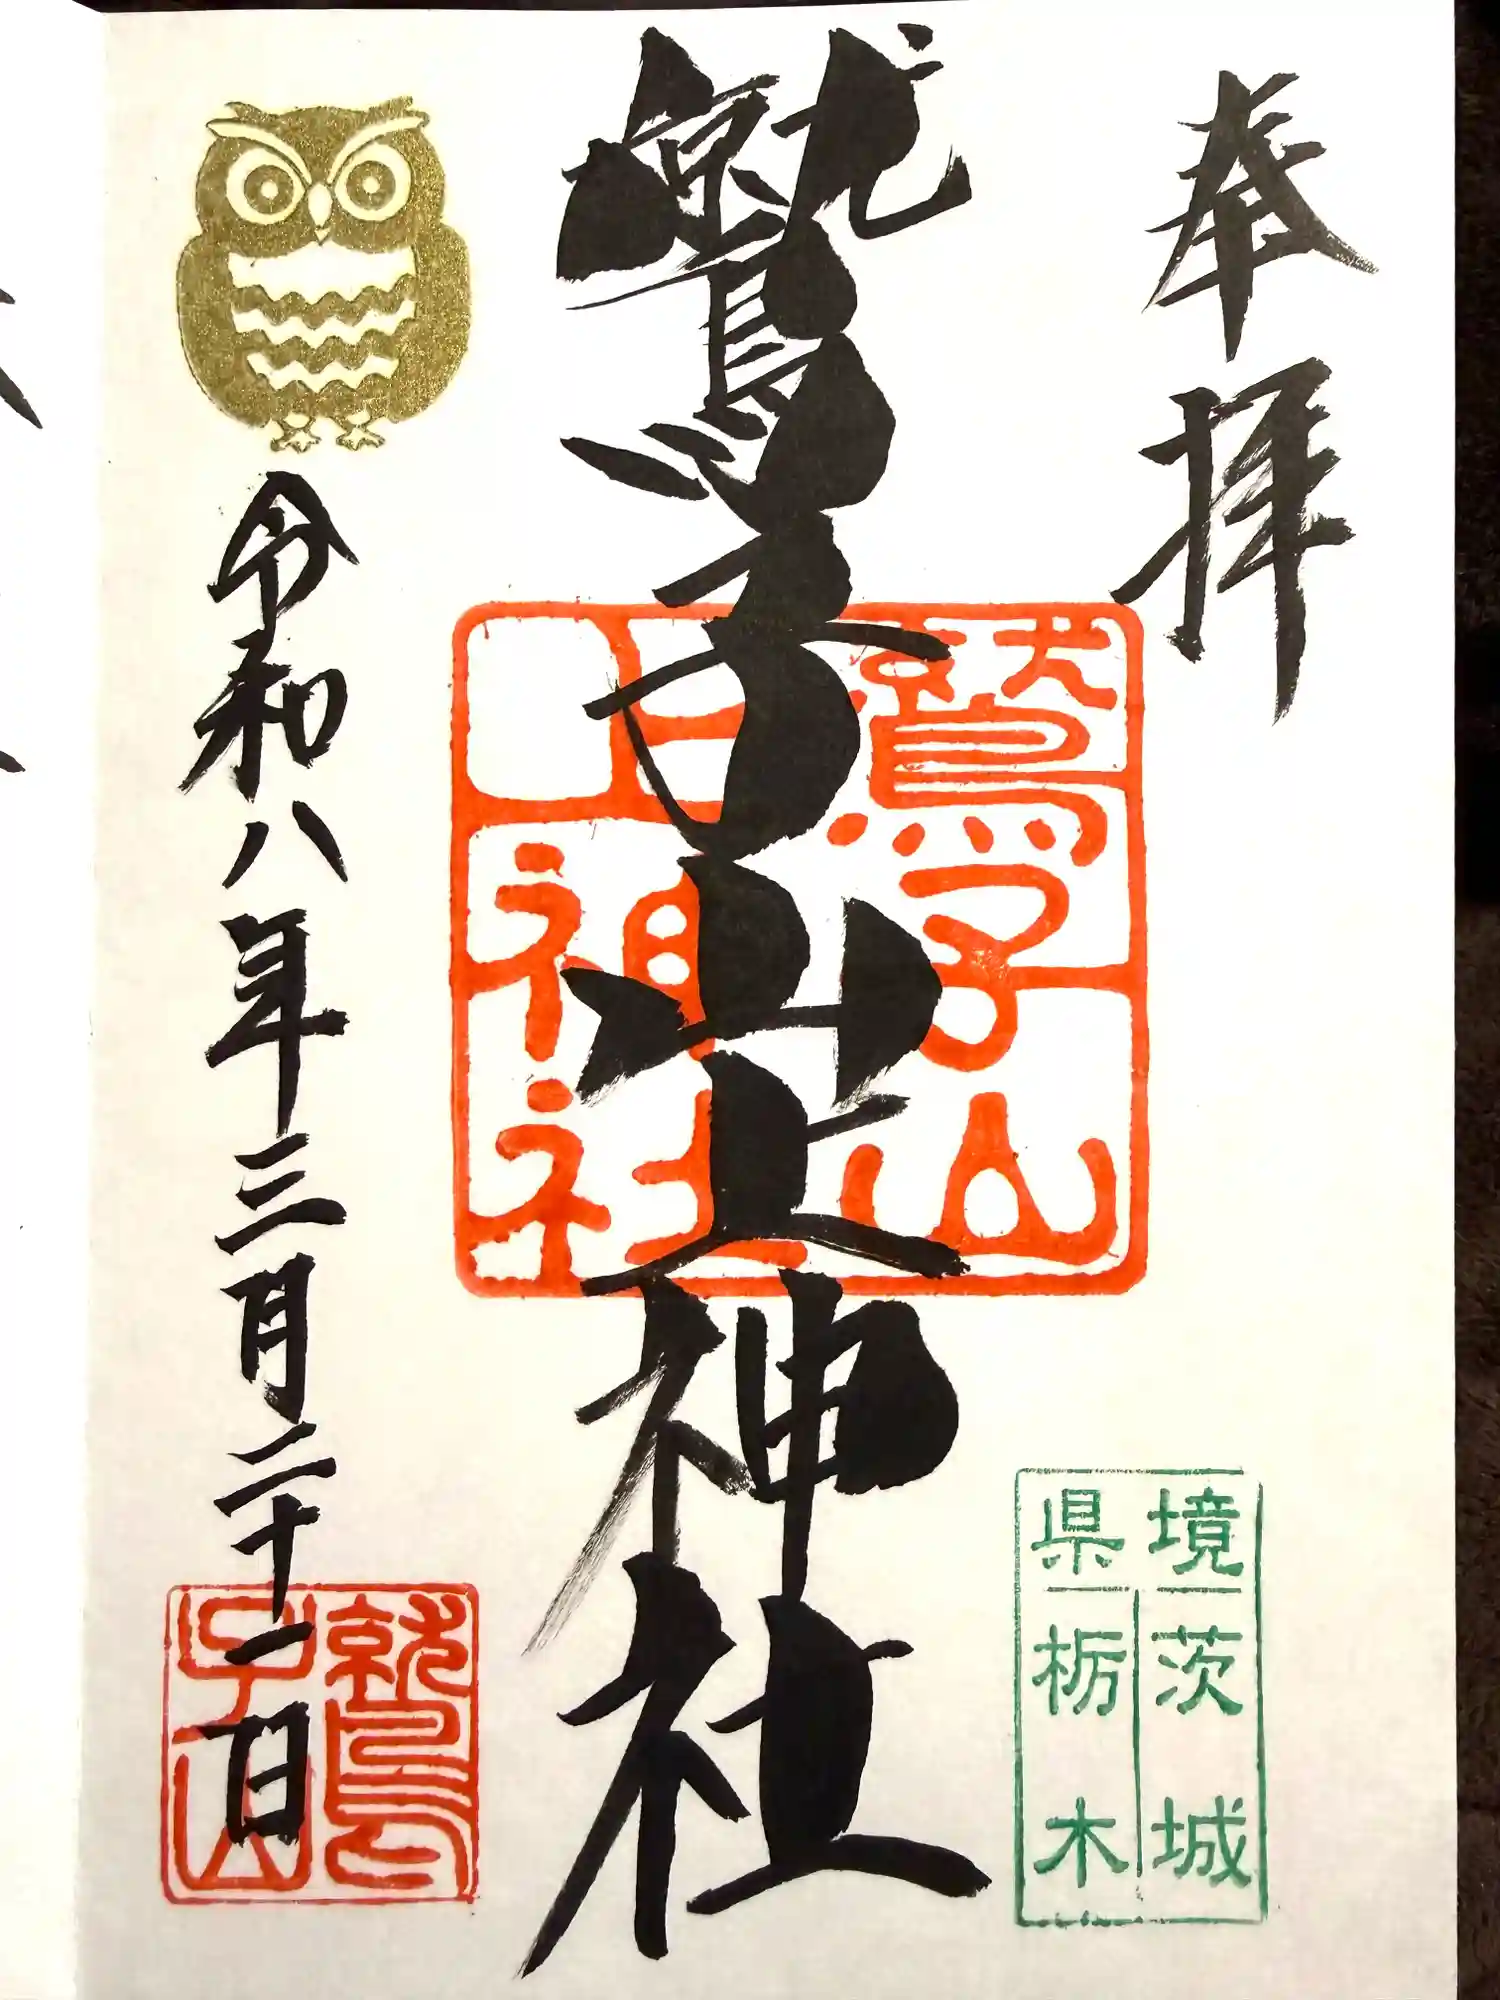 奉拝
鷲子山上神社
鷲子山
上神社
境 茨城
県 栃木
令和八年三月二十一日
鷲
子山